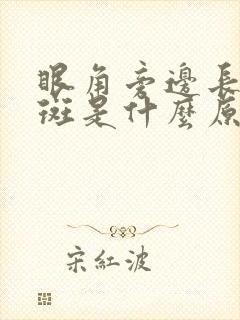 眼角旁邊長
斑是什麼原
宋紅波